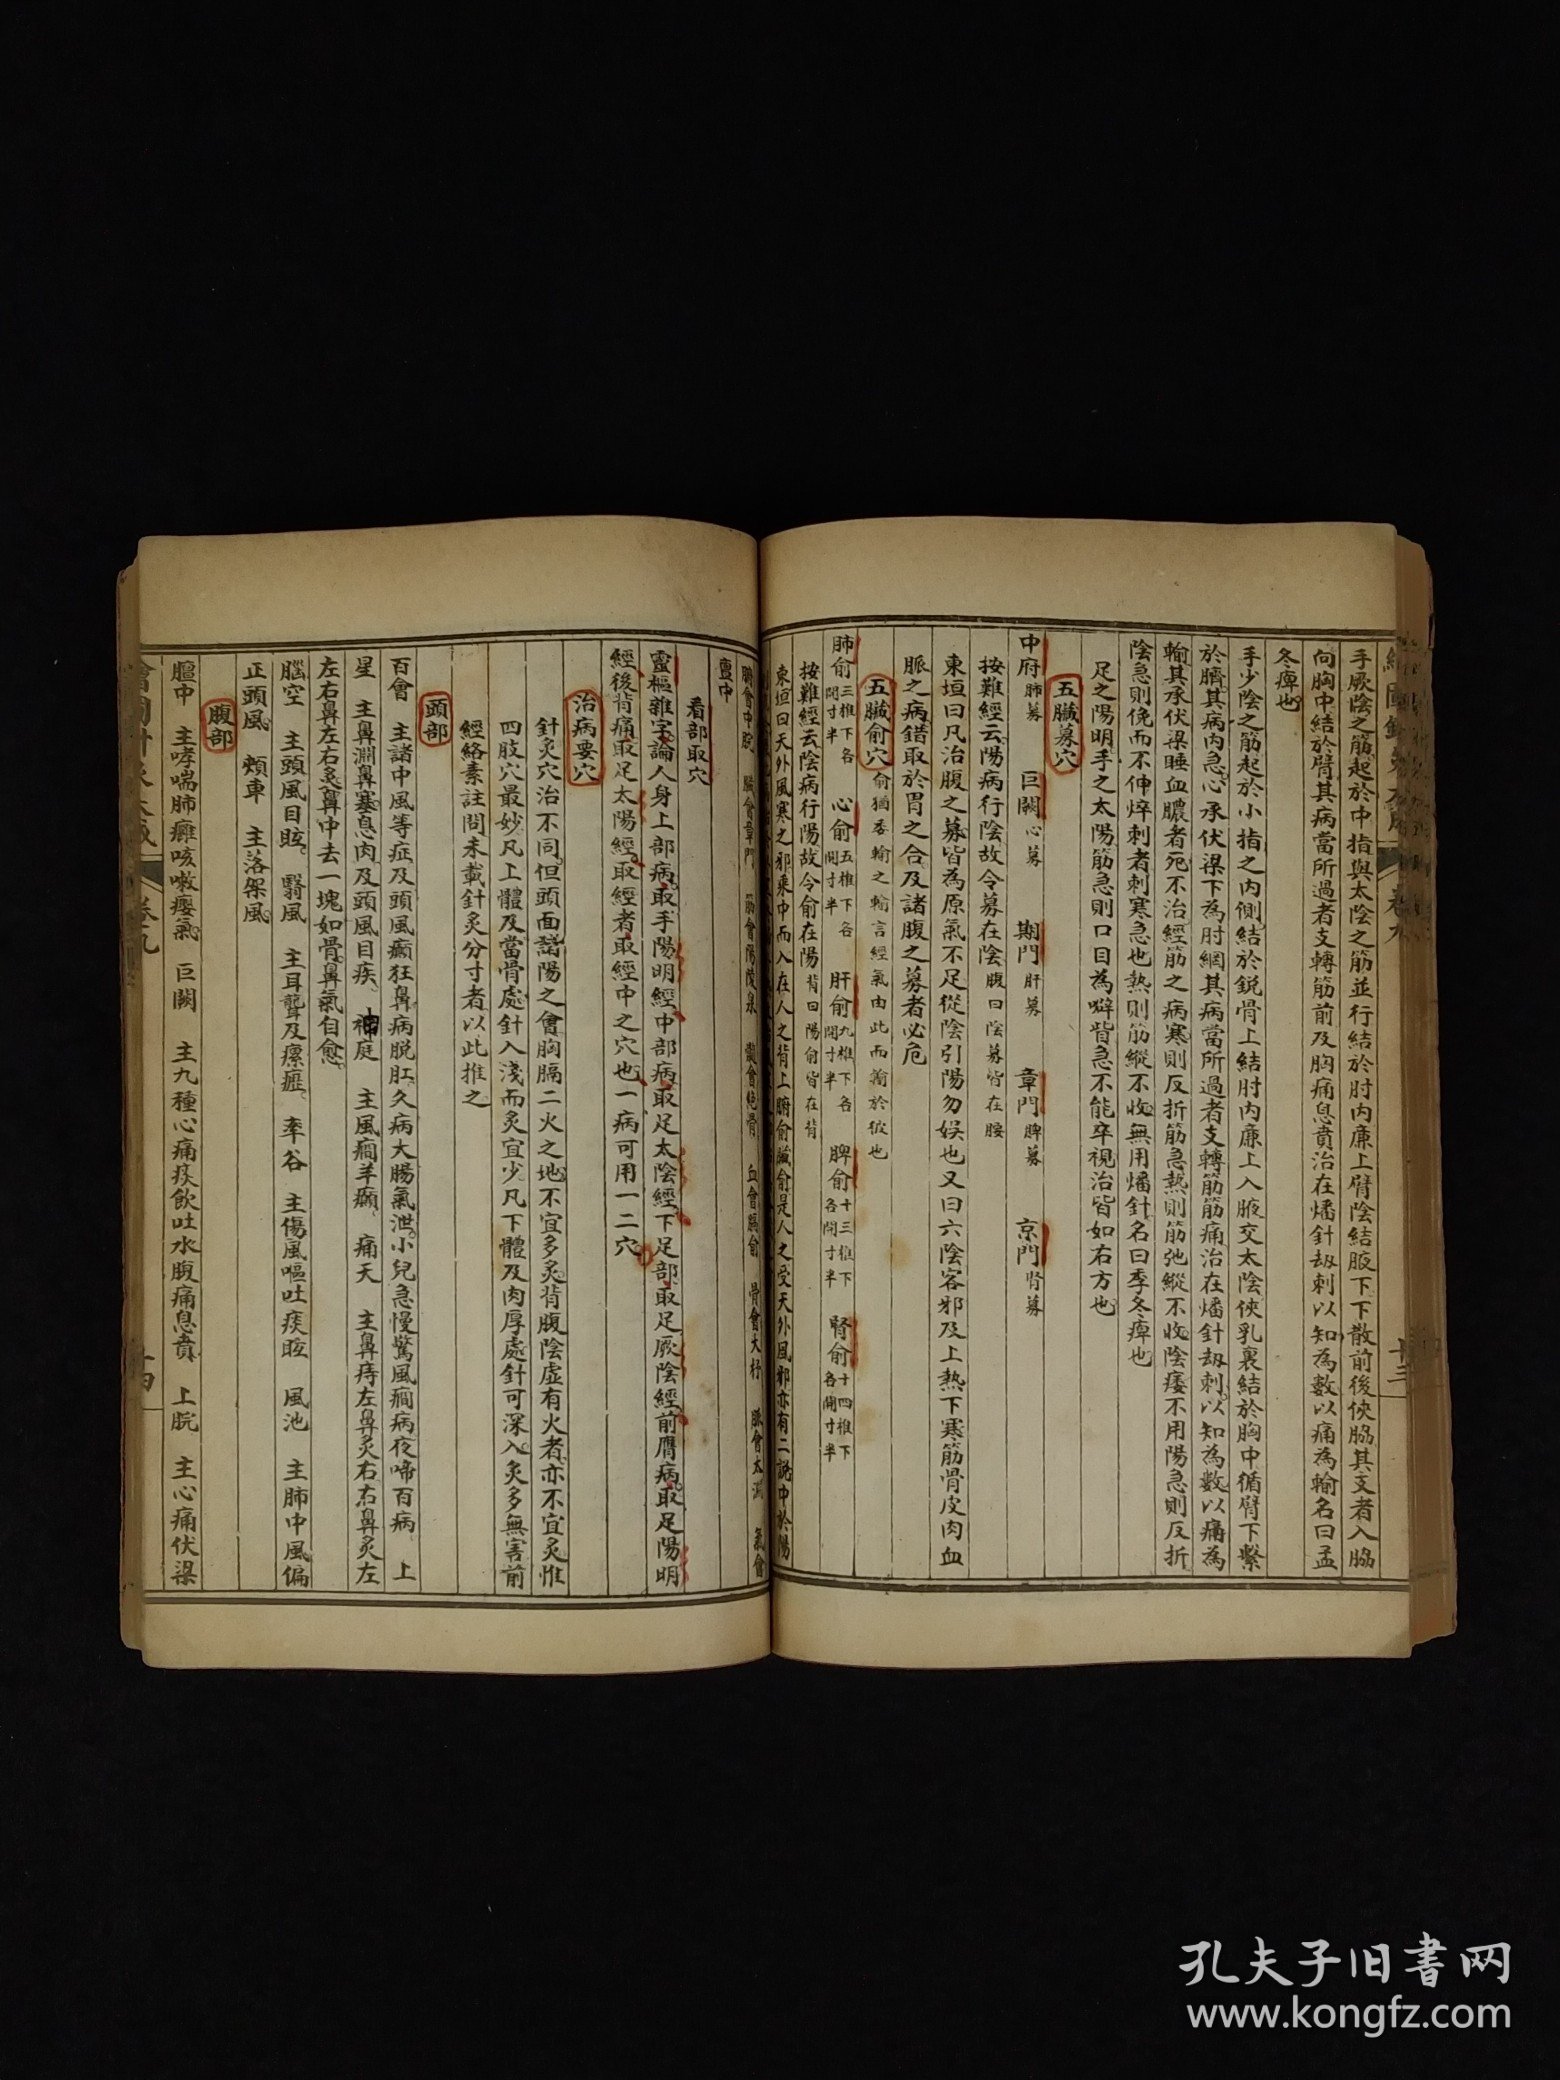 手厥陰之筋起於中指與太陰之筋並行結於肘內廉上臂陰結腋下下散前後俠脇其支者入脇
向胸中結於臂其病當所過者支轉筋前及胸痛息賁治在燔針刼刺以知為數以痛為輸名曰孟
冬痺也
手少陰之筋起於小指之內側結於銳骨上結肘內廉上入腋交太陰俠乳裏結於胸中循臂下繫
於臍其病內急心承伏梁下為肘綱其病當所過者支轉筋筋痛治在燔針刼刺以知為數以痛為
輸其承伏梁唾血膿者死不治經筋之病寒則反折筋急熱則筋弛縱不收陰痿不用陽急則反折
陰急則俛而不伸焠刺者刺寒急也熱則筋縱不收無用燔針名曰季冬痺也
足之陽明手之太陽筋急則口目為噼眥急不能卒視治皆如右方也
五臟募穴
中府肺募 巨闕心募 期門肝募 章門脾募 京門腎募
按難經云陽病行陰故令募在陰腹曰陰募皆在腹
東垣曰凡治腹之募皆為原氣不足從陰引陽勿娛也又曰六陰客邪及上熱下寒筋骨皮肉血
脈之病錯取於胃之合及諸腹之募者必危
五臟俞穴俞猶委輸之輸言經氣由此而輸於彼也
肺俞三椎下各開寸半 心俞五椎下各開寸半 肝俞九椎下各開寸半 脾俞十三椎下各開寸半 腎俞十四椎下各開寸半
按難經云陰病行陽故令俞在陽背曰陽俞皆在背
東垣曰天外風寒之邪乘中而入在人之背上腑俞臟俞是人之受天外風邪亦有二說中於陽
腑會中脘 臟會章門 筋會陽陵泉 髓會絕骨 血會膈俞 骨會大杼 脈會太淵 氣會
亶中
看部取穴
靈樞雜字論人身上部病取手陽明經中部病取足太陰經下足部取足厥陰經前膺病取足陽明
經後背痛取足太陽經取經者取經中之穴也一病可用一二穴
治病要穴
針灸穴治不同但頭面諸陽之會胸膈二火之地不宜多灸背腹陰虛有火者亦不宜灸惟
四肢穴最妙凡上體及當骨處針入淺而灸宜少凡下體及肉厚處針可深入灸多無害前
經絡素註問未載針灸分寸者以此推之
頭部
百會 主諸中風等症及頭風癲狂鼻病脫肛久病大腸氣泄小兒急慢驚風癇病夜啼百病 上
星 主鼻淵鼻塞息肉及頭風目疾 神庭 主風癇羊癲 痛天 主鼻痔左鼻灸右右鼻灸左
左右鼻左右灸鼻中去一塊如骨鼻氣自愈
腦空 主頭風目眩 翳風 主耳聾及瘰癧 率谷 主傷風嘔吐痰眩 風池 主肺中風偏
正頭風 頰車 主落架風
腹部
膻中 主哮喘肺癰咳嗽癭氣 巨闕 主九種心痛痰飲吐水腹痛息賁 上脘 主心痛伏梁
卷九
十四
卷九
十三
孔夫子旧书网
www.kongfz.com